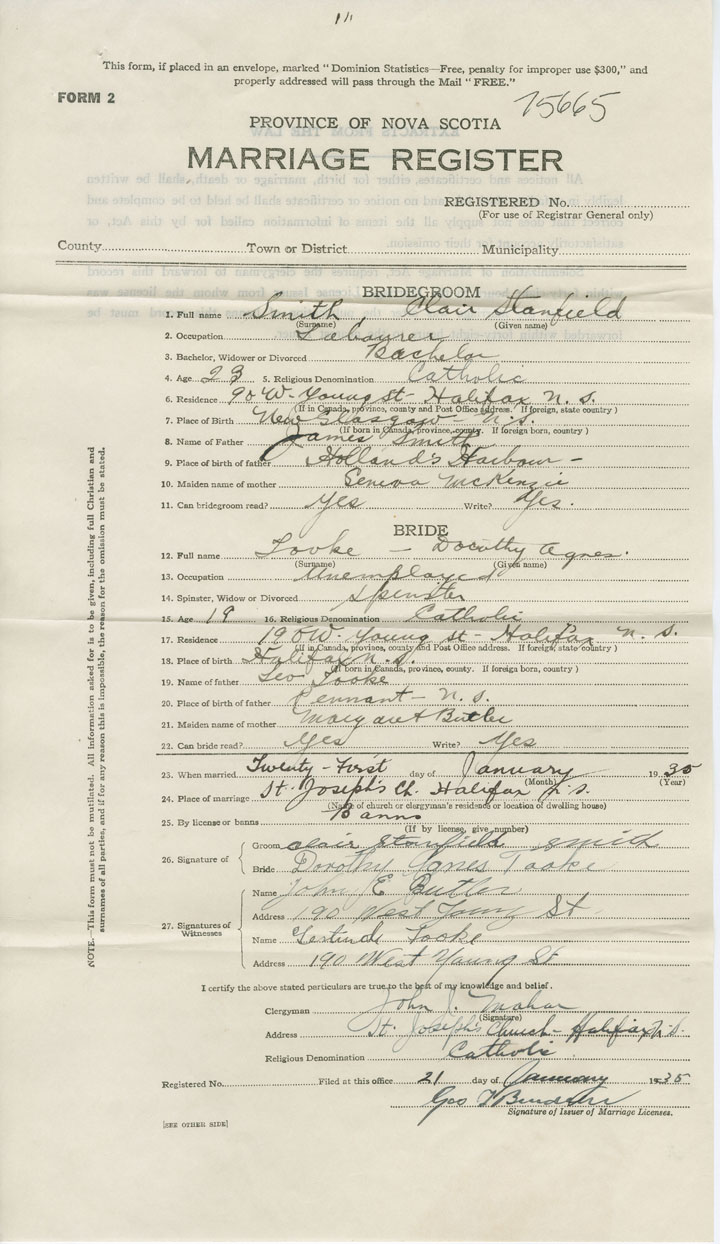 This form, if placed in an envelope, marked "Dominion Statistics—Free, penalty for improper use $300," and
properly addressed will pass through the Mail "FREE."
FORM 2
75665
PROVINCE OF NOVA SCOTIA
MARRIAGE REGISTER
REGISTERED No.
(For use of Registrar General only)
County Town or District Municipality
BRIDEGROOM
1. Full name Smith, Clair Stanfield
(Surname) (Given name)
2. Occupation Labourer
3. Bachelor, Widower or Divorced Bachelor
4. Age 23 5. Religious Denomination Catholic
6. Residence 90 W. Young St- Halifax N. S.
(If in Canada, province, county and Post Office address. If foreign, state country)
7. Place of Birth New Glasgow- N. S.
(If born in Canada, province, county. If foreign born, country)
8. Name of Father James Smith
9. Place of birth of father Holland's Harbour -
10. Maiden name of mother Geneva McKenzie
11. Can bridegroom read? Yes Write? Yes.
BRIDE
12. Full name Tooke - Dorothy Agnes.
(Surname) (Given name)
13. Occupation Unemployed
14. Spinster, Widow or Divorced Spinster
15. Age 19 16. Religious Denomination Catholic
17. Residence 190 W. Young St- Halifax N. S.
(If in Canada, province, county and Post Office address. If foreign, state country)
18. Place of birth Halifax N. S.
(If born in Canada, province, county. If foreign born, country)
19. Name of father Leo Tooke
20. Place of birth of father Pennant- N. S.
21. Maiden name of mother Margaret Butler
22. Can bride read? Yes Write? Yes
23. When married Twenty-First day of January 1935
(Month) (Year)
24. Place of marriage St. Joseph's Ch. Halifax N.S.
(Name of church or clergyman's residence or location of dwelling house)
25. By license or banns Banns
(If by license, give number)
26. Signature of
Groom Clair Stanfield Smith
Bride Dorothy Agnes Tooke
27. Signatures of Witnesses
Name John E Butler
Address 190 West Young St
Name Gertrude Tooke
Address 190 West Young St
I certify the above stated particulars are true to the best of my knowledge and belief.
Clergyman John J. Mahar
(Signature)
Address St. Joseph's Church- Halifax N.S.
Religious Denomination Catholic
Registered No. Filed at this office 21 day of January 1935
Geo
Signature of Issuer of Marriage Licenses.
[SEE OTHER SIDE]
NOTE.—This form must not be mutilated. All information asked for is to be given, including full Christian and
surnames of all parties, and if for any reason this is impossible, the reason for the omission must be stated.